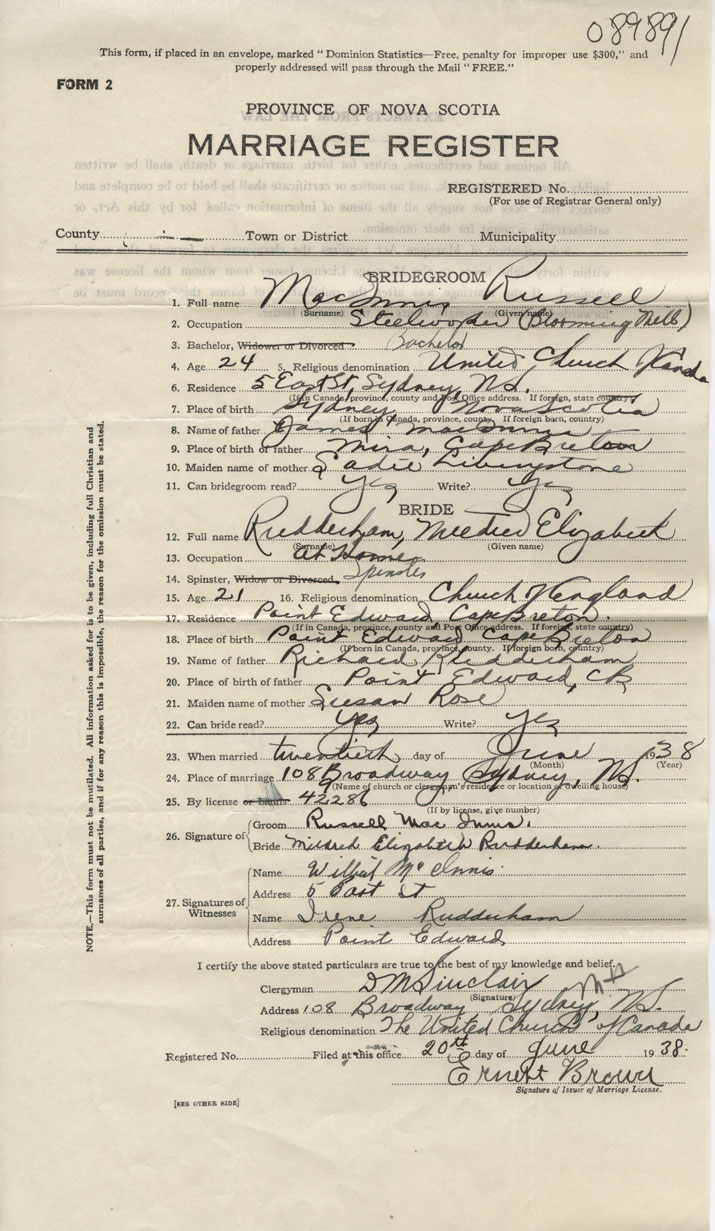 089891
This form, if placed in an envelope, marked "Dominion Statistics—Free, penalty for improper use $300," and
properly addressed will pass through the Mail "FREE."
FORM 2
PROVINCE OF NOVA SCOTIA
MARRIAGE REGISTER
REGISTERED No.
(For use of Registrar General only)
County Town or District Municipality
BRIDEGROOM
1. Full name MacInnis Russell
(Surname) (Given name)
2. Occupation Steelworker (Blooming Mill)
3. Bachelor, Widower or Divorced Bachelor
4. Age 24 5. Religious denomination United Church Canada
6. Residence 5 East St, Sydney, N.S.
(If in Canada, province, county and Post Office address. If foreign, state country)
7. Place of birth Sydney Nova Scotia
(If born in Canada, province, county. If foreign born, country)
8. Name of father James MacInnis
9. Place of birth of father Mira, Cape Breton
10. Maiden name of mother Sadie Livingstone
11. Can bridegroom read? Yes Write? Yes
BRIDE
12. Full name Rudderham, Elizabeth
(Surname) (Given name)
13. Occupation At Home
14. Spinster, Widow or Divorced Spinster
15. Age 21 16. Religious denomination Church England
17. Residence Point Edward Cape Breton
(If in Canada, province, county and Post Office address. If foreign, state country)
18. Place of birth Point Edward Cape Breton
(If born in Canada, province, county. If foreign born, country)
19. Name of father Richard Rudderham
20. Place of birth of father Point Edward, CB
21. Maiden name of mother Susan Rose
22. Can bride read? Yes Write? Yes
23. When married twentieth day of June 1938
(Month) (Year)
24. Place of marriage 108 Broadway Sydney, N.S.
(Name of church or clergyman's residence or location of dwelling house)
25. By license or banns 42286
(If by license, give number)
26. Signature of
Groom Russell MacInnis.
Bride Mildred Elizabeth Rudderham.
27. Signatures of Witnesses
Name Wilbert McInnis
Address 5 East St
Name Irene Rudderham
Address Point Edward
I certify the above stated particulars are true to the best of my knowledge and belief.
Clergyman D M Sinclair
(Signature)
Address 108 Broadway, Sydney N.S.
Religious denomination The United Church of Canada
Registered No. Filed at this office 20th day of June 1938.
Ernest Brown
Signature of Issuer of Marriage License.
[SEE OTHER SIDE]
NOTE.—This form must not be mutilated. All information asked for is to be given, including full Christian and
surnames of all parties, and if for any reason this is impossible, the reason for the omission must be stated.